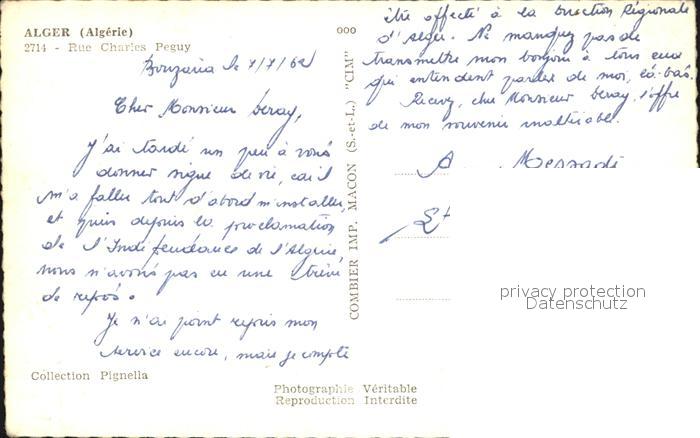 ALGER (Algérie)
2714 - Rue Charles Peguy
Bouzaria le 7/7/62
Cher Monsieur Geray,
J'ai tardé un peu à vous
donner signe de vie, car il
m'a fallu tout d'abord m'installer,
et puis depuis la proclamation
de l'Indépendance de l'Algérie,
nous n'avons pas eu une trève
de repos.
Je n'ai point rejoins mon
service encore, mais je compte
être affecté à la Direction Régionale
d'Alger. Ne manquez pas de
transmettre mon bonjour à tous ceux
qui entendent parler de moi, là-bas.
Recevez, cher Monsieur Geray, l'offre
de mon souvenir inaltérable.
A Messadi
Collection Pignella
ooo
COMBIER IMP. MACON (S.-et-L.) "CIM"
Photographie Véritable
Reproduction Interdite
privacy protection
Datenschutz